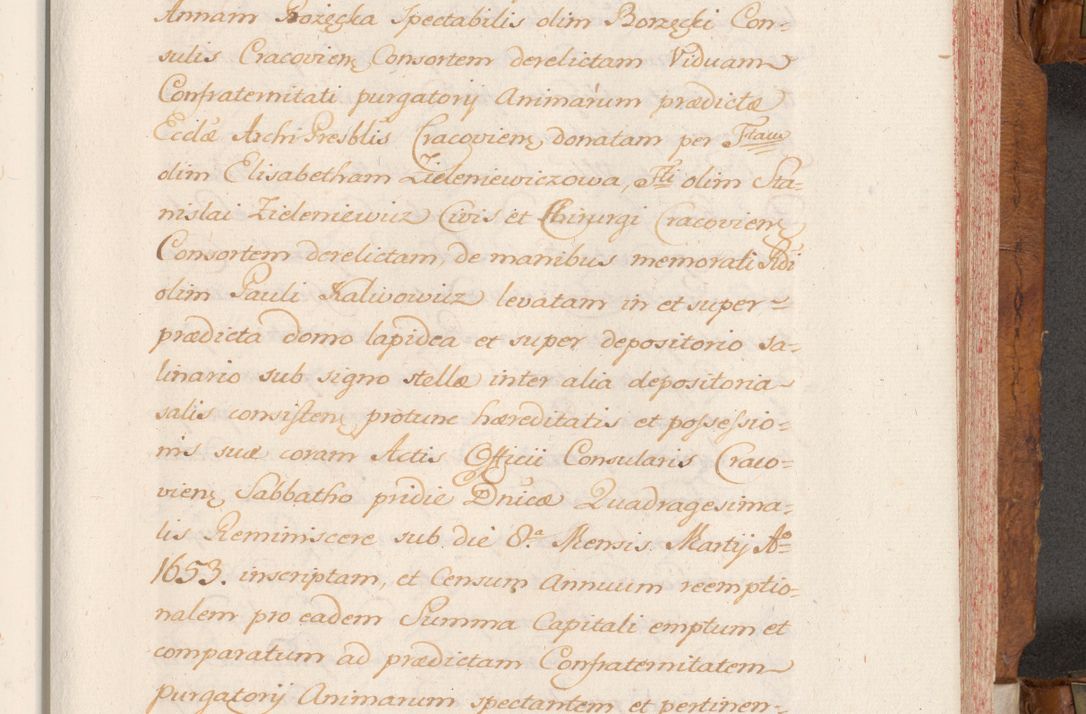 Annam Rożęcka Spectabilis olim Borzęcki Con-
sulis Cracovien, Consortem derelictam Viduam
Confraternitati purgatorij Animarum prædictæ
Ecclæ Archi Presblis Cracovien, donatam per Ftam
olim Elisabetham Zieleniewiczowa, Fti olim Sta-
nislai Zieleniewicz Civis et Chirurgi Cracovien,
Consortem derelictam, de manibus memorati Rdi
olim Pauli Kaliwowicz levatam in et super
prædicta domo lapidea et super depositorio sa-
linario sub signo stellæ inter alia depositoria
salis consisten, protunc hæreditatis et possessio-
nis suæ coram Actis Officii Consularis Craco-
vien, Sabbatho pridie Dnicæ Quadragesima-
lis Reminiscere sub die 8.a Mensis Martij Ao
1653. inscriptam, et Censum Annuum reemptio-
nalem pro eadem Summa Capitali emptum et
comparatum ad prædictam Confraternitatem
purgatorij Animarum spectantem et pertinen-